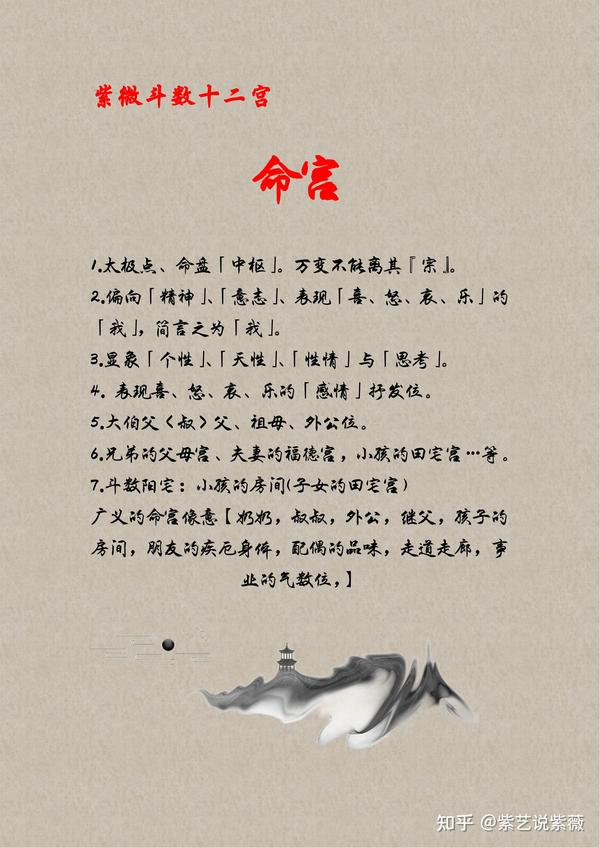 紫微斗数十二宫
命宫
1.太极点、命盘「中枢」。万变不能离其『宗』。
2.偏向「精神」、「意志」、表现「喜、怒、哀、乐」的
「我」，简言之为「我」。
3.显象「个性」、「天性」、「性情」与「思考」。
4. 表现喜、怒、哀、乐的「感情」抒发位。
5.大伯父〈叔〉父、祖母、外公位。
6.兄弟的父母宫、夫妻的福德宫，小孩的田宅宫…等。
7.斗数阳宅：小孩的房间(子女的田宅宫)
广义的命宫像意【奶奶，叔叔，外公，继父，孩子的
房间，朋友的疾厄身体，配偶的品味，走道走廊，事
业的气数位，】
知乎 @紫艺说紫薇